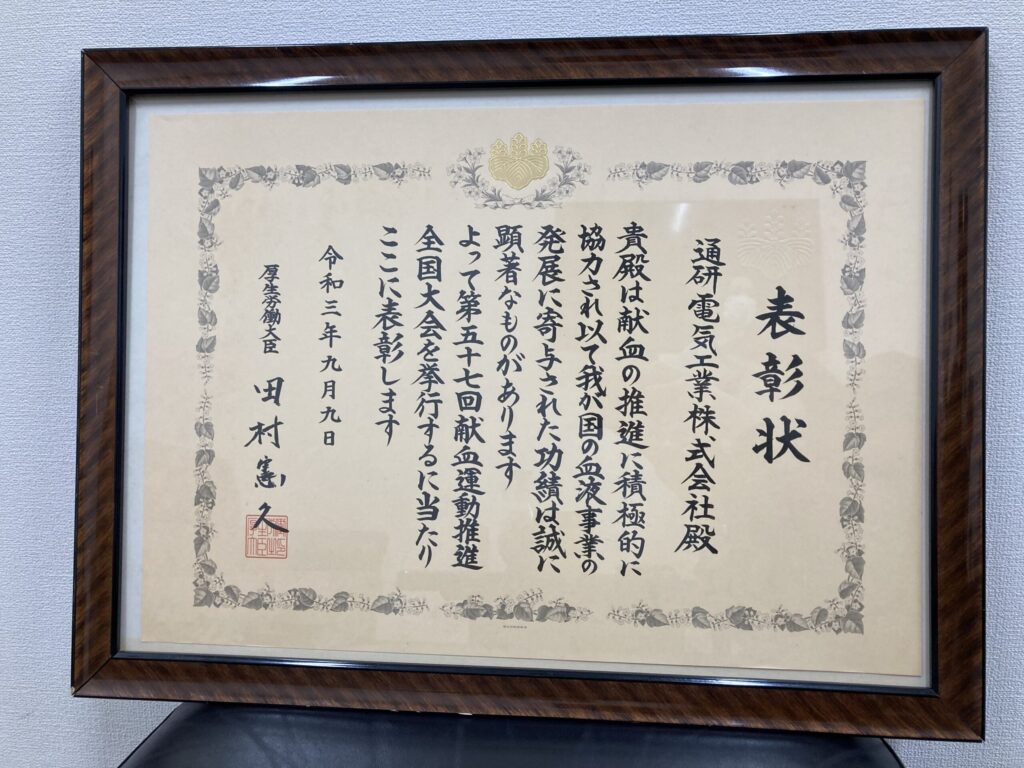 表彰状
通研電気工業株式会社殿
貴殿は献血の推進に積極的に
協力され以て我が国の血液事業の
発展に寄与された功績は誠に
顕著なものがあります
よって第五十七回献血運動推進
全国大会を挙行するに当たり
ここに表彰します
令和三年九月九日
厚生労働大臣 田村憲久